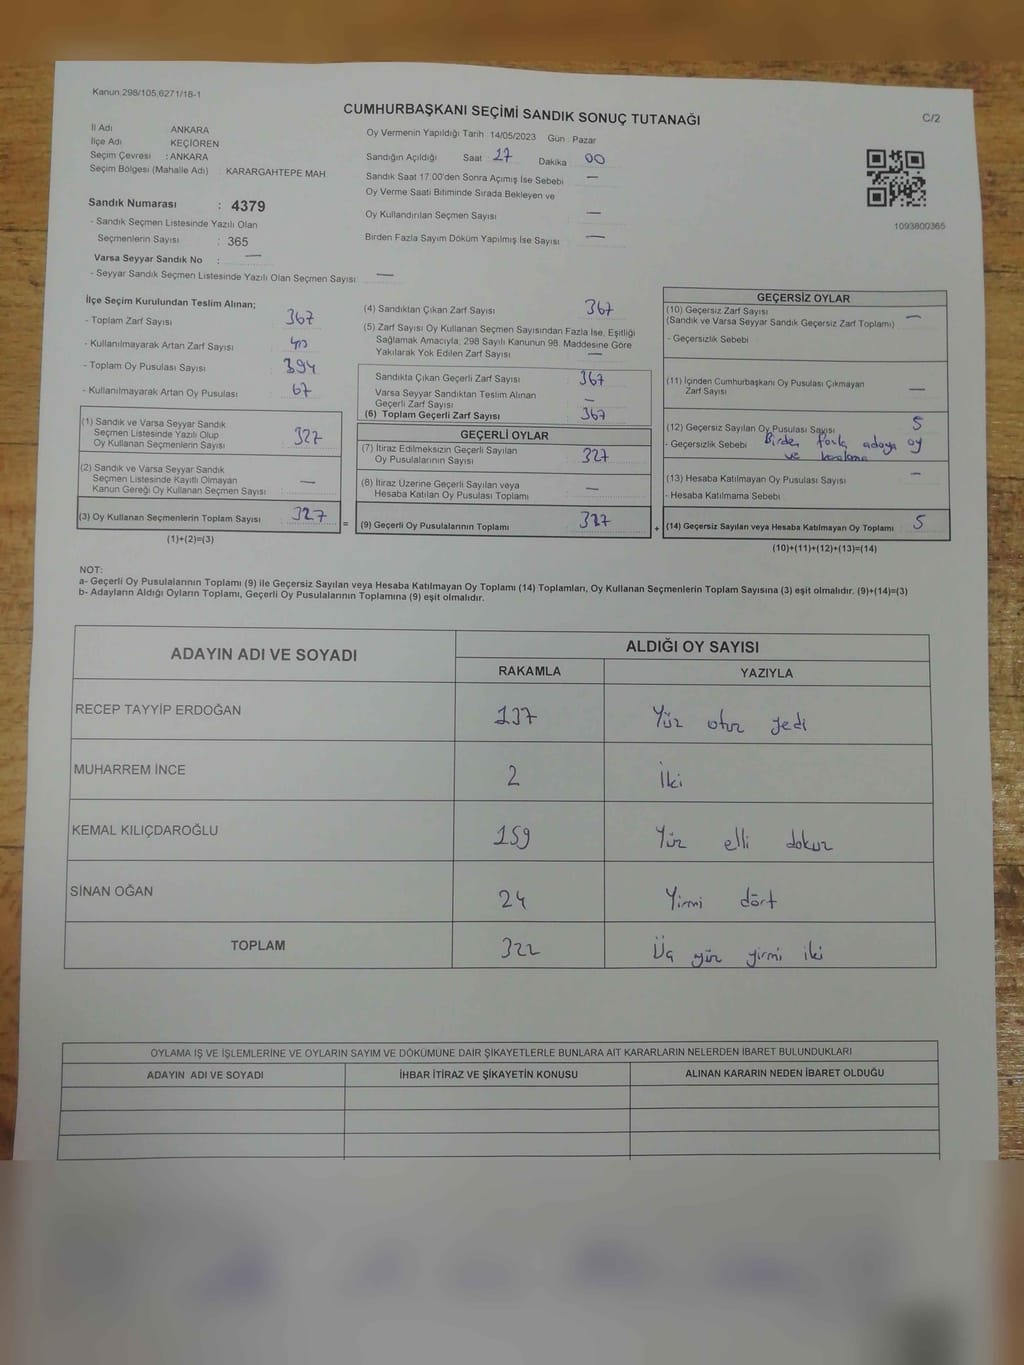 Kanun 298/105,6271/18-1
CUMHURBAŞKANI SEÇİMİ SANDIK SONUÇ TUTANAĞI
C/2
İl Adı ANKARA
İlçe Adı KEÇİÖREN
Seçim Çevresi : ANKARA
Seçim Bölgesi (Mahalle Adı) KARARGAHTEPE MAH
Oy Vermenin Yapıldığı Tarih : 14/05/2023 Gün : Pazar
Sandığın Açıldığı Saat 17 Dakika 00
Sandık Saat 17:00'den Sonra Açımış İse Sebebi —
Oy Verme Saati Bitiminde Sırada Bekleyen ve
Oy Kullandırılan Seçmen Sayısı —
Birden Fazla Sayım Döküm Yapılmış İse Sayısı —
1093800365
Sandık Numarası : 4379
- Sandık Seçmen Listesinde Yazılı Olan
Seçmenlerin Sayısı : 365
Varsa Seyyar Sandık No : —
- Seyyar Sandık Seçmen Listesinde Yazılı Olan Seçmen Sayısı —
İlçe Seçim Kurulundan Teslim Alınan;
- Toplam Zarf Sayısı 367
- Kullanılmayarak Artan Zarf Sayısı
- Toplam Oy Pusulası Sayısı 394
- Kullanılmayarak Artan Oy Pusulası 67
(1) Sandık ve Varsa Seyyar Sandık
Seçmen Listesinde Yazılı Olup
Oy Kullanan Seçmenlerin Sayısı 327
(2) Sandık ve Varsa Seyyar Sandık
Seçmen Listesinde Kayıtlı Olmayan
Kanun Gereği Oy Kullanan Seçmen Sayısı —
(3) Oy Kullanan Seçmenlerin Toplam Sayısı 327
(1)+(2)=(3)
=
(4) Sandıktan Çıkan Zarf Sayısı 367
(5) Zarf Sayısı Oy Kullanan Seçmen Sayısından Fazla İse, Eşitliği
Sağlamak Amacıyla, 298 Sayılı Kanunun 98. Maddesine Göre
Yakılarak Yok Edilen Zarf Sayısı —
Sandıkta Çıkan Geçerli Zarf Sayısı 367
Varsa Seyyar Sandıktan Teslim Alınan
Geçerli Zarf Sayısı —
(6) Toplam Geçerli Zarf Sayısı 367
GEÇERLİ OYLAR
(7) İtiraz Edilmeksizin Geçerli Sayılan
Oy Pusulalarının Sayısı 327
(8) İtiraz Üzerine Geçerli Sayılan veya
Hesaba Katılan Oy Pusulası Toplamı —
(9) Geçerli Oy Pusulalarının Toplamı 327
+
GEÇERSİZ OYLAR
(10) Geçersiz Zarf Sayısı —
(Sandık ve Varsa Seyyar Sandık Geçersiz Zarf Toplamı)
- Geçersizlik Sebebi
(11) İçinden Cumhurbaşkanı Oy Pusulası Çıkmayan
Zarf Sayısı —
(12) Geçersiz Sayılan Oy Pusulası Sayısı 5
- Geçersizlik Sebebi Birden fazla adaya oy
ve
(13) Hesaba Katılmayan Oy Pusulası Sayısı —
- Hesaba Katılmama Sebebi
(14) Geçersiz Sayılan veya Hesaba Katılmayan Oy Toplamı 5
(10)+(11)+(12)+(13)=(14)
NOT:
a- Geçerli Oy Pusulalarının Toplamı (9) ile Geçersiz Sayılan veya Hesaba Katılmayan Oy Toplamı (14) Toplamları, Oy Kullanan Seçmenlerin Toplam Sayısına (3) eşit olmalıdır. (9)+(14)=(3)
b- Adayların Aldığı Oyların Toplamı, Geçerli Oy Pusulalarının Toplamına (9) eşit olmalıdır.
ADAYIN ADI VE SOYADI
ALDIĞI OY SAYISI
RAKAMLA YAZIYLA
RECEP TAYYİP ERDOĞAN 137 Yüz otuz yedi
MUHARREM İNCE 2 İki
KEMAL KILIÇDAROĞLU 159 Yüz elli dokuz
SİNAN OĞAN 24 Yirmi dört
TOPLAM 322 Üç yüz yirmi iki
OYLAMA İŞ VE İŞLEMLERİNE VE OYLARIN SAYIM VE DÖKÜMÜNE DAİR ŞİKAYETLERLE BUNLARA AİT KARARLARIN NELERDEN İBARET BULUNDUKLARI
ADAYIN ADI VE SOYADI İHBAR İTİRAZ VE ŞİKAYETİN KONUSU ALINAN KARARIN NEDEN İBARET OLDUĞU